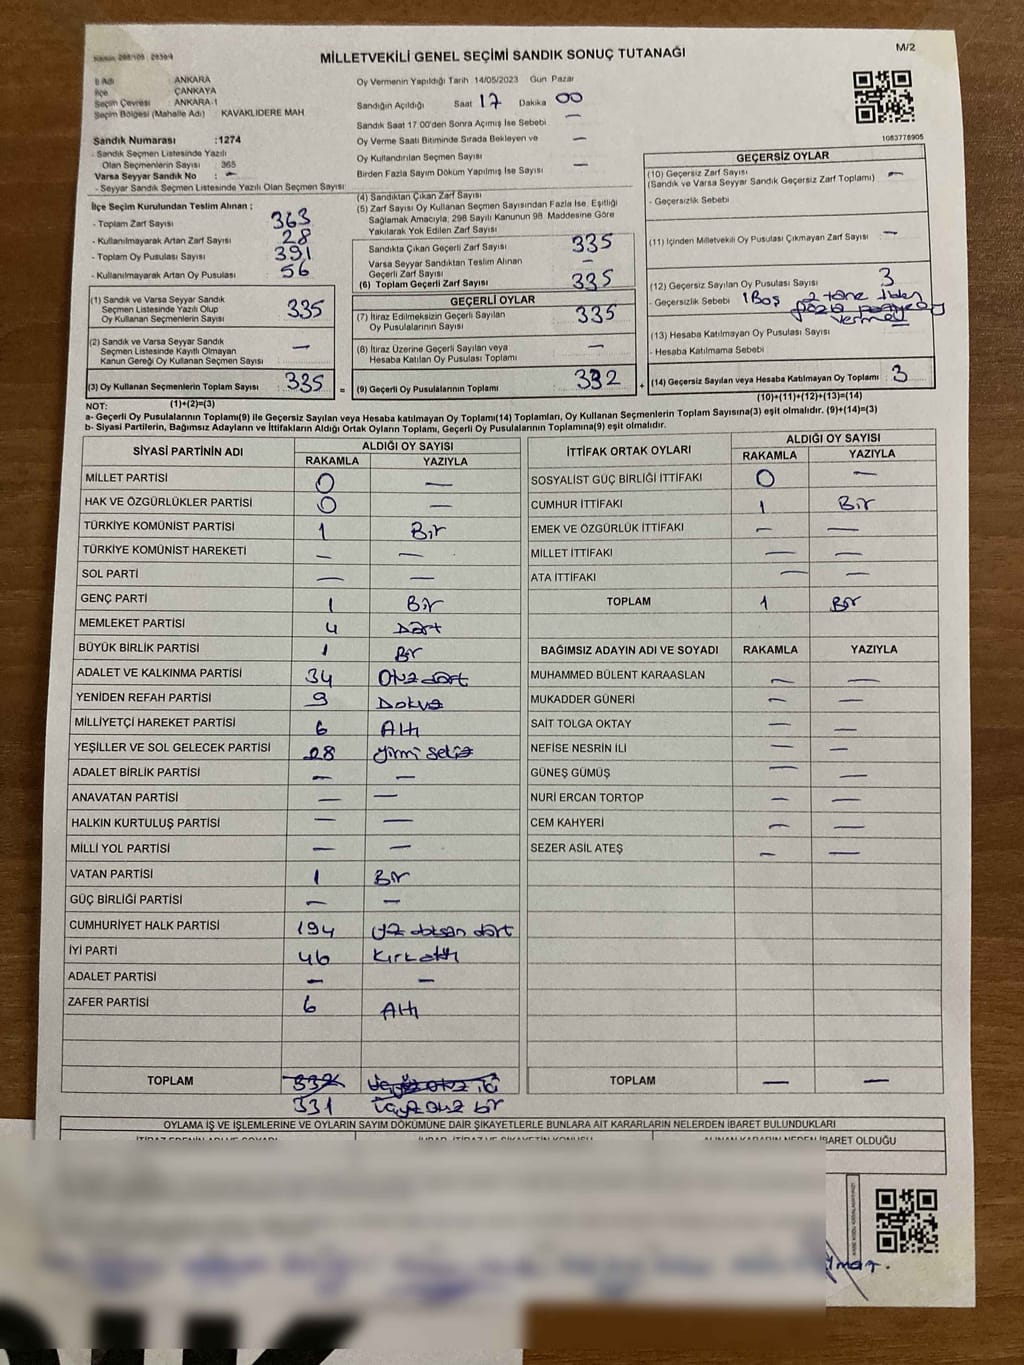 MİLLETVEKİLİ GENEL SEÇİMİ SANDIK SONUÇ TUTANAĞI
M/2
İl Adı : ANKARA
İlçe : ÇANKAYA
Seçim Çevresi : ANKARA-1
Seçim Bölgesi (Mahalle Adı) : KAVAKLIDERE MAH
Sandık Numarası :1274
- Sandık Seçmen Listesinde Yazılı
Olan Seçmenlerin Sayısı : 365
Varsa Seyyar Sandık No : —
- Seyyar Sandık Seçmen Listesinde Yazılı Olan Seçmen Sayısı:
İlçe Seçim Kurulundan Teslim Alınan ;
- Toplam Zarf Sayısı : 363
- Kullanılmayarak Artan Zarf Sayısı : 28
- Toplam Oy Pusulası Sayısı : 391
- Kullanılmayarak Artan Oy Pusulası : 56
(1) Sandık ve Varsa Seyyar Sandık
Seçmen Listesinde Yazılı Olup
Oy Kullanan Seçmenlerin Sayısı : 335
(2) Sandık ve Varsa Seyyar Sandık
Seçmen Listesinde Kayıtlı Olmayan
Kanun Gereği Oy Kullanan Seçmen Sayısı : —
(3) Oy Kullanan Seçmenlerin Toplam Sayısı : 335 =
(1)+(2)=(3)
Oy Vermenin Yapıldığı Tarih :14/05/2023 Gün Pazar
Sandığın Açıldığı Saat 17 Dakika 00
Sandık Saat 17:00'den Sonra Açımış İse Sebebi : —
Oy Verme Saati Bitiminde Sırada Bekleyen ve
Oy Kullandırılan Seçmen Sayısı : —
Birden Fazla Sayım Döküm Yapılmış İse Sayısı : —
(4) Sandıktan Çıkan Zarf Sayısı
(5) Zarf Sayısı Oy Kullanan Seçmen Sayısından Fazla İse, Eşitliği
Sağlamak Amacıyla, 298 Sayılı Kanunun 98. Maddesine Göre
Yakılarak Yok Edilen Zarf Sayısı :
Sandıkta Çıkan Geçerli Zarf Sayısı : 335
Varsa Seyyar Sandıktan Teslim Alınan
Geçerli Zarf Sayısı : —
(6) Toplam Geçerli Zarf Sayısı : 335
GEÇERLİ OYLAR
(7) İtiraz Edilmeksizin Geçerli Sayılan
Oy Pusulalarının Sayısı : 335
(8) İtiraz Üzerine Geçerli Sayılan veya
Hesaba Katılan Oy Pusulası Toplamı : —
(9) Geçerli Oy Pusulalarının Toplamı : 332 +
1083778905
GEÇERSİZ OYLAR
(10) Geçersiz Zarf Sayısı
(Sandık ve Varsa Seyyar Sandık Geçersiz Zarf Toplamı) : —
- Geçersizlik Sebebi
(11) İçinden Milletvekili Oy Pusulası Çıkmayan Zarf Sayısı : —
(12) Geçersiz Sayılan Oy Pusulası Sayısı : 3
- Geçersizlik Sebebi : 1 Boş 2 tane
(13) Hesaba Katılmayan Oy Pusulası Sayısı :
- Hesaba Katılmama Sebebi
(14) Geçersiz Sayılan veya Hesaba Katılmayan Oy Toplamı : 3
(10)+(11)+(12)+(13)=(14)
NOT:
a- Geçerli Oy Pusulalarının Toplamı(9) ile Geçersiz Sayılan veya Hesaba katılmayan Oy Toplamı(14) Toplamları, Oy Kullanan Seçmenlerin Toplam Sayısına(3) eşit olmalıdır. (9)+(14)=(3)
b- Siyasi Partilerin, Bağımsız Adayların ve İttifakların Aldığı Ortak Oyların Toplamı, Geçerli Oy Pusulalarının Toplamına(9) eşit olmalıdır.
SİYASİ PARTİNİN ADI ALDIĞI OY SAYISI
RAKAMLA YAZIYLA
MİLLET PARTİSİ 0 —
HAK VE ÖZGÜRLÜKLER PARTİSİ 0 —
TÜRKİYE KOMÜNİST PARTİSİ 1 Bir
TÜRKİYE KOMÜNİST HAREKETİ — —
SOL PARTİ — —
GENÇ PARTİ 1 Bir
MEMLEKET PARTİSİ 4 Dört
BÜYÜK BİRLİK PARTİSİ 1 Bir
ADALET VE KALKINMA PARTİSİ 34 Otuz dört
YENİDEN REFAH PARTİSİ 9 Dokuz
MİLLİYETÇİ HAREKET PARTİSİ 6 Altı
YEŞİLLER VE SOL GELECEK PARTİSİ 28 yirmi sekiz
ADALET BİRLİK PARTİSİ — —
ANAVATAN PARTİSİ — —
HALKIN KURTULUŞ PARTİSİ — —
MİLLİ YOL PARTİSİ — —
VATAN PARTİSİ 1 Bir
GÜÇ BİRLİĞİ PARTİSİ — —
CUMHURİYET HALK PARTİSİ 194 yüz doksan dört
İYİ PARTİ 46 Kırk altı
ADALET PARTİSİ — —
ZAFER PARTİSİ 6 Altı
TOPLAM 332 üçyüz otuz iki
331 üçyüz otuz bir
İTTİFAK ORTAK OYLARI ALDIĞI OY SAYISI
RAKAMLA YAZIYLA
SOSYALİST GÜÇ BİRLİĞİ İTTİFAKI 0 —
CUMHUR İTTİFAKI 1 Bir
EMEK VE ÖZGÜRLÜK İTTİFAKI — —
MİLLET İTTİFAKI — —
ATA İTTİFAKI — —
TOPLAM 1 Bir
BAĞIMSIZ ADAYIN ADI VE SOYADI RAKAMLA YAZIYLA
MUHAMMED BÜLENT KARAASLAN — —
MUKADDER GÜNERİ — —
SAİT TOLGA OKTAY — —
NEFİSE NESRİN İLİ — —
GÜNEŞ GÜMÜŞ — —
NURİ ERCAN TORTOP — —
CEM KAHYERİ — —
SEZER ASİL ATEŞ — —
TOPLAM — —
OYLAMA İŞ VE İŞLEMLERİNE VE OYLARIN SAYIM DÖKÜMÜNE DAİR ŞİKAYETLERLE BUNLARA AİT KARARLARIN NELERDEN İBARET BULUNDUKLARI
İBARET OLDUĞU